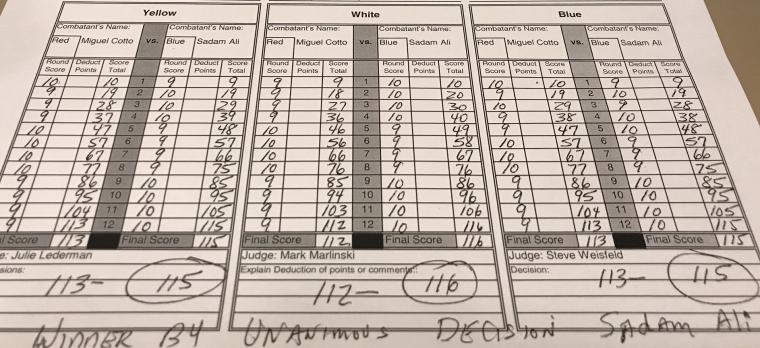 Yellow
Combatant's Name: Combatant's Name:
Red Miguel Cotto vs. Blue Sadam Ali
Round Score Deduct Points Score Total Round Score Deduct Points Score Total
10 10 1 9 9
9 19 2 10 19
9 28 3 10 29
9 37 4 10 39
10 47 5 9 48
10 57 6 9 57
10 67 7 9 66
10 77 8 9 75
9 86 9 10 85
9 95 10 10 95
9 104 11 10 105
9 113 12 10 115
l Score 113 Final Score 115
e: Julie Lederman
sions:
113- 115
White
Combatant's Name: Combatant's Name:
Red Miguel Cotto vs. Blue Sadam Ali
Round Score Deduct Points Score Total Round Score Deduct Points Score Total
9 9 1 10 10
9 18 2 10 20
9 27 3 10 30
9 36 4 10 40
10 46 5 9 49
10 56 6 9 58
10 66 7 9 67
10 76 8 9 76
9 85 9 10 86
9 94 10 10 96
9 103 11 10 106
9 112 12 10 116
Final Score 112 Final Score 116
Judge: Mark Marlinski
Explain Deduction of points or comments:
112- 116
Blue
Combatant's Name: Combatant's Name:
Red Miguel Cotto vs. Blue Sadam Ali
Round Score Deduct Points Score Total Round Score Deduct Points Score Total
10 10 1 9 9
9 19 2 10 19
10 29 3 9 28
9 38 4 10 38
9 47 5 10 48
10 57 6 9 57
10 67 7 9 66
10 77 8 9 75
9 86 9 10 85
9 95 10 10 95
9 104 11 10 105
9 113 12 10 115
Final Score 113 Final Score 115
Judge: Steve Weisfeld
Decision:
113- 115
WINNER BY UNANIMOUS DECISION SADAM Ali